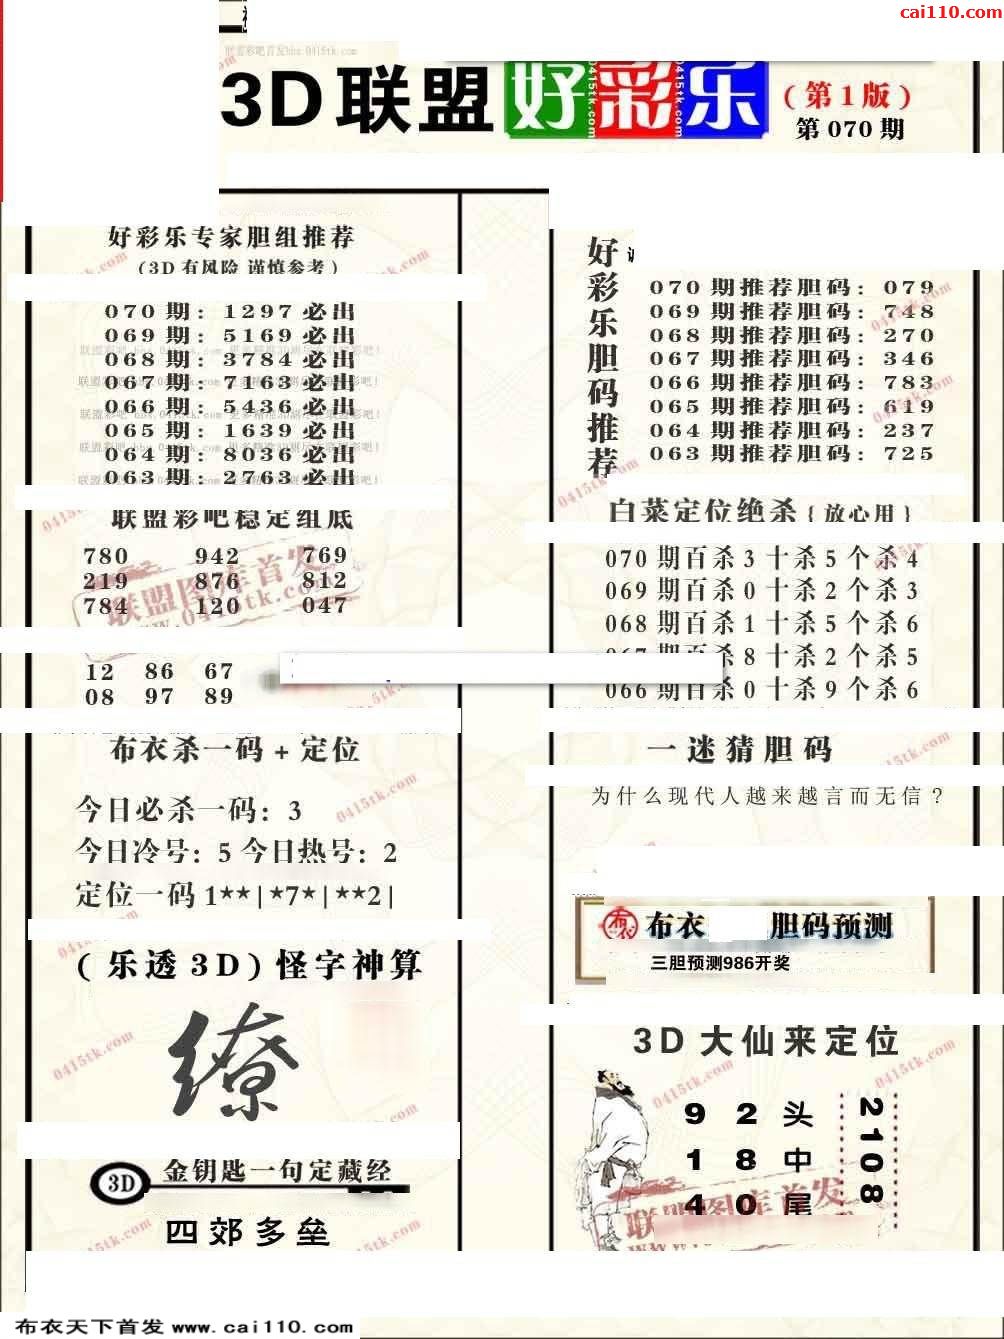 cai110.com
3D联盟好彩乐
(第1版)
第070期
好彩乐专家胆组推荐
(3D有风险 谨慎参考)
070期：1297必出
069期：5169必出
068期：3784必出
067期：7163必出
066期：5436必出
065期：1639必出
064期：8036必出
063期：2763必出
联盟彩吧稳定组底
780 942 769
219 876 812
784 120 047
12 86 67
08 97 89
布衣杀一码+定位
今日必杀一码：3
今日冷号：5 今日热号：2
定位一码1**|*7*|**2|
(乐透3D)怪字神算
缭
3D 金钥匙一句定藏经
四郊多垒
好彩乐胆码推荐
070期推荐胆码：079
069期推荐胆码：748
068期推荐胆码：270
067期推荐胆码：346
066期推荐胆码：783
065期推荐胆码：619
064期推荐胆码：237
063期推荐胆码：725
白菜定位绝杀{放心用}
070期百杀3十杀5个杀4
069期百杀0十杀2个杀3
068期百杀1十杀5个杀6
杀8十杀2个杀5
066期百杀0十杀9个杀6
一迷猜胆码
为什么现代人越来越言而无信？
布衣 布衣 胆码预测
三胆预测986开奖
3D大仙来定位
9 2头
1 8中
4 0尾
2108
联盟图库首发
0415tk.com
布衣天下首发 www.cai110.com